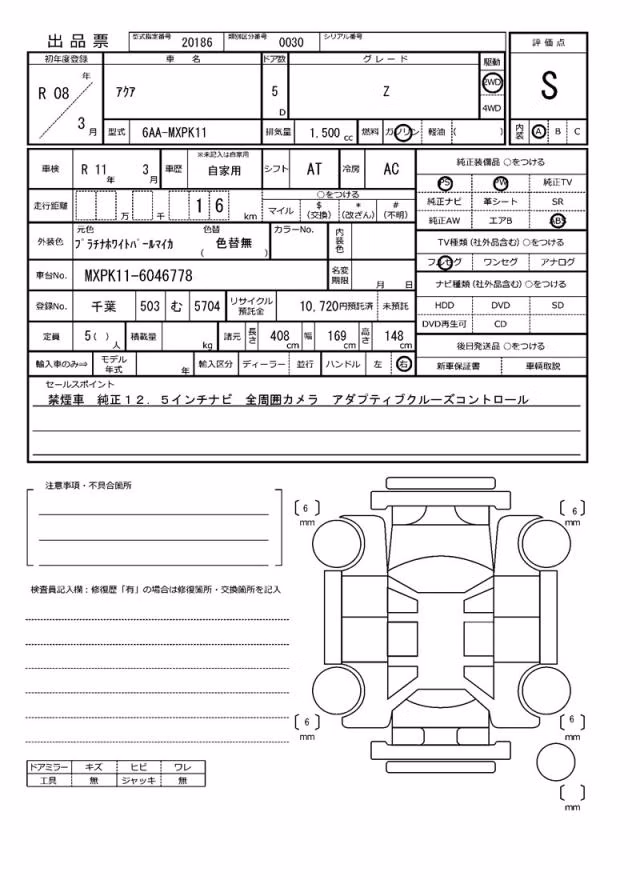 出品票
型式指定番号 20186 類別区分番号 0030 シリアル番号
評価点
S
内装 A B C
初年度登録 車名 ドア数 グレード 駆動
R 08 年 3 月
アクア
5 D
Z
2WD
4WD
型式 6AA-MXPK11 排気量 1.500 cc 燃料 ガソリン 軽油 ( )
車検 R 11 年 3 月 車歴 ※未記入は自家用 自家用 シフト AT 冷房 AC
走行距離 万 千 1 6 km
○をつける
マイル $ (交換) * (改ざん) # (不明)
外装色 元色 プラチナホワイトパールマイカ 色替 ( 色替無 ) カラーNo. 内装色
車台No. MXPK11-6046778 名変期限 月 日
登録No. 千葉 503 む 5704 リサイクル預託金 10,720円預託済 未預託
定員 5 ( ) 人 積載量 kg 諸元 長さ 408 cm 幅 169 cm 高さ 148 cm
輸入車のみ⇒ モデル年式 年 輸入区分 ディーラー 並行 ハンドル 左 右
純正装備品 ○をつける
PS PW 純正TV
純正ナビ 革シート SR
純正AW エアB ABS
TV種類 (社外品含む) ○をつける
フルセグ ワンセグ アナログ
ナビ種類 (社外品含む) ○をつける
HDD DVD SD
DVD再生可 CD
後日発送品 ○をつける
新車保証書 車輌取説
セールスポイント
禁煙車 純正12.5インチナビ 全周囲カメラ アダプティブクルーズコントロール
注意事項・不具合箇所
検査員記入欄:修復歴「有」の場合は修復箇所・交換箇所を記入
ドアミラー キズ ヒビ ワレ
工具 無 ジャッキ 無
〔 6 〕 mm
〔 6 〕 mm
〔 6 〕 mm
〔 6 〕 mm
〔 〕 mm